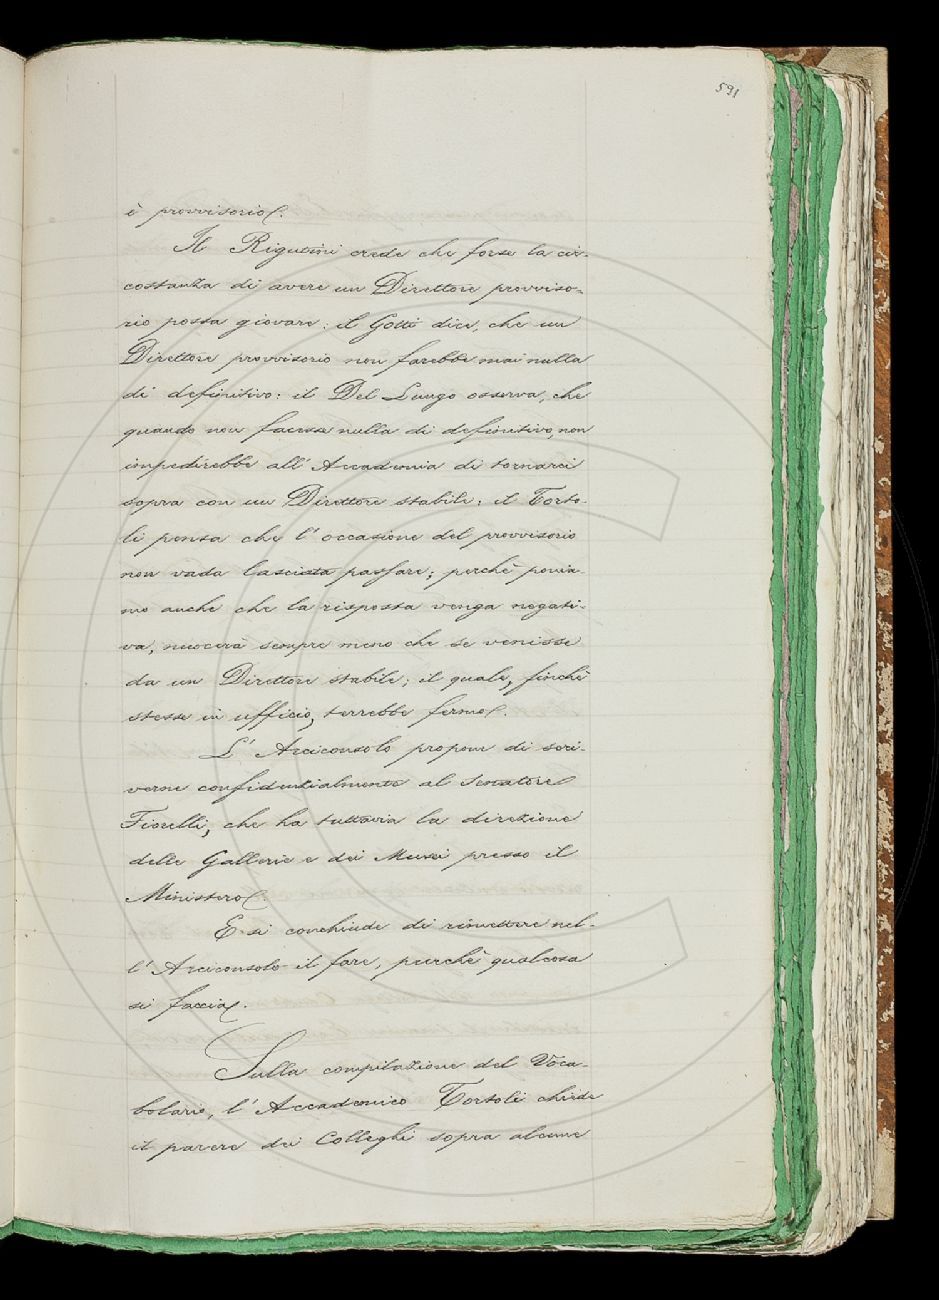 591
è provvisorio.
Il Rigutini crede che forse la cir-
costanza di avere un Direttore provviso-
rio possa giovare: il Gotti dice, che un
Direttore provvisorio non farebbe mai nulla
di definitivo: il Del Lungo osserva, che
quando non facesse nulla di definitivo, non
impedirebbe all'Accademia di tornarci
sopra con un Direttore stabile: il Torto-
li pensa che l'occasione del provvisorio
non vada lasciata passare; perchè ponia-
mo anche che la risposta venga negati-
va, nuocerà sempre meno che se venisse
da un Direttore stabile; il quale, finchè
stesse in ufficio, terrebbe fermo.
L'Arciconsolo propone di scri-
verne confidenzialmente al Senatore
Fiorelli, che ha tuttavia la direzione
delle Gallerie e dei Musei presso il
Ministero.
E si conchiude di rimettere nel-
l'Arciconsolo il fare, purchè qualcosa
si faccia.
Sulla compilazione del Voca-
bolario, l'Accademico Tortoli chiede
il parere dei Colleghi sopra alcune